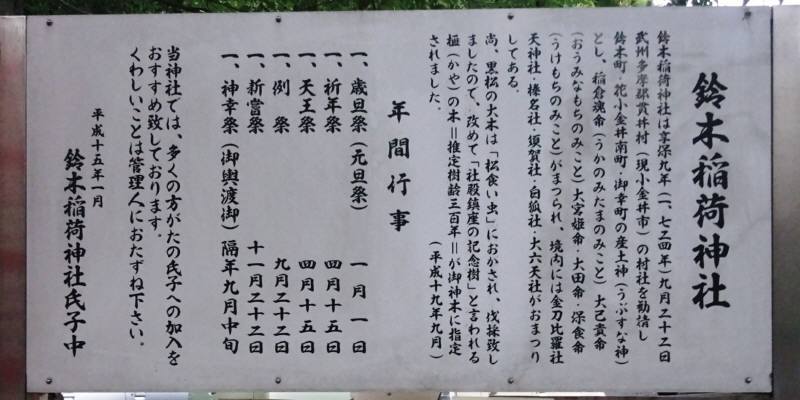 鈴木稲荷神社
鈴木稲荷神社は享保九年(一、七二四年)九月二十二日
武州多摩郡貫井村(現小金井市)の村社を勧請し
鈴木町・花小金井南町・御幸町の産土神(うぶすな神)
とし、稲倉魂命(うかのみたまのみこと)大己貴命
(おうみなもちのみこと)大宮姫命・大田命・保食命
(うけもちのみこと)がまつられ、境内には金刀比羅社
天神社・榛名社・須賀社・白狐社・大六天社がおまつり
してある。
尚、黒松の大木は「松食い虫」におかされ、伐採致し
ましたので、改めて「社殿鎮座の記念樹」と言われる
榧(かや)の木=推定樹齢三百年=が御神木に指定
されました。
(平成十九年九月)
年間行事
一、歳旦祭(元旦祭) 一月一日
一、祈年祭 四月十五日
一、天王祭 四月十五日
一、例祭 九月二十二日
一、新嘗祭 十一月二十二日
一、神幸祭(御輿渡御) 隔年九月中旬
当神社では、多くの方がたの氏子への加入を
おすすめ致しております。
くわしいことは管理人におたずね下さい。
平成十五年一月
鈴木稲荷神社氏子中